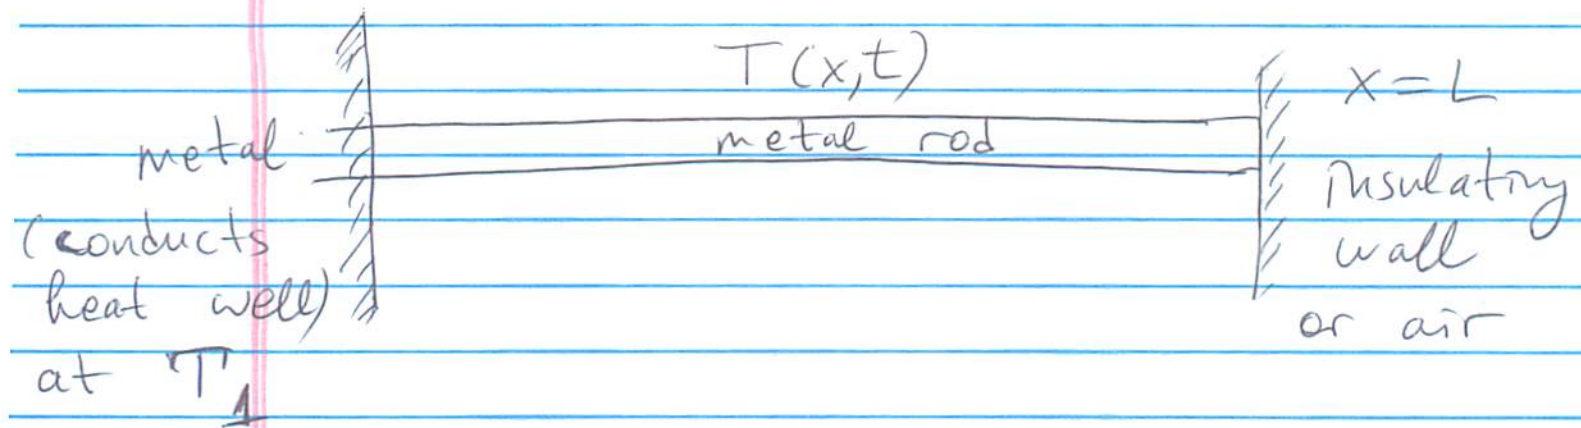 T(x,t)
x=L
metal rod
metal
(conducts
heat well)
at T1
insulating
wall
or air